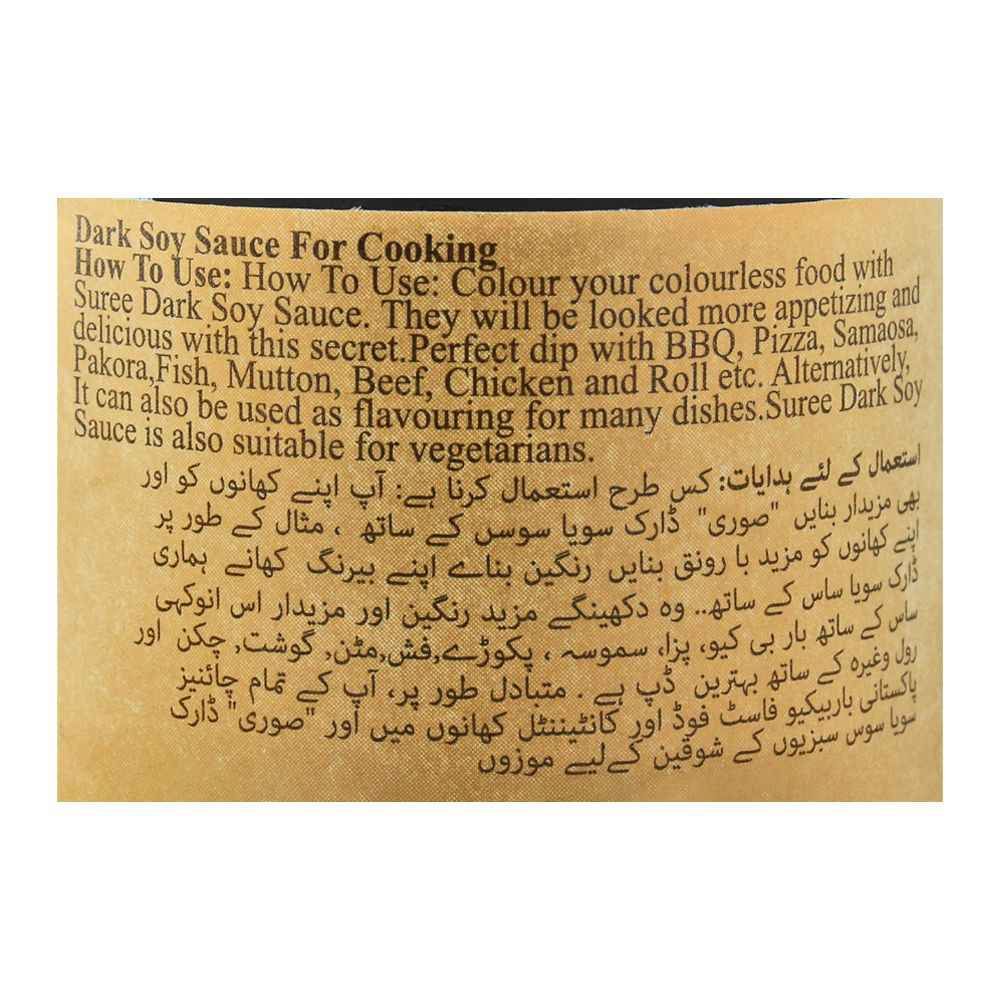 Dark Soy Sauce For Cooking
How To Use: How To Use: Colour your colourless food with
Suree Dark Soy Sauce. They will be looked more appetizing and
delicious with this secret.Perfect dip with BBQ, Pizza, Samaosa,
Pakora,Fish, Mutton, Beef, Chicken and Roll etc. Alternatively,
It can also be used as flavouring for many dishes.Suree Dark Soy
Sauce is also suitable for vegetarians.
استعمال کے لئے ہدایات: کس طرح استعمال کرنا ہے: آپ اپنے کھانوں کو اور
بھی مزیدار بنایں "صوری" ڈارک سویا سوسں کے ساتھ ، مثال کے طور پر
اپنے کھانوں کو مزید با رونق بنایں رنگین بناے اپنے بیرنگ کھانے ہماری
ڈارک سویا ساس کے ساتھ.. وہ دکھینگے مزید رنگین اور مزیدار اس انوکہی
ساس کے ساتھ بار بی کیو، پزا، سموسہ ، پکوڑے,فش,مٹن, گوشت, چکن اور
رول وغیرہ کے ساتھ بہترین ڈپ ہے . متبادل طور پر، آپ کے تمام چائنیز
پاکستانی باربیکیو فاسٹ فوڈ اور کانٹیننٹل کھانوں میں اور "صوری" ڈارک
سویا سوس سبزیوں کے شوقین کےلیے موزوں